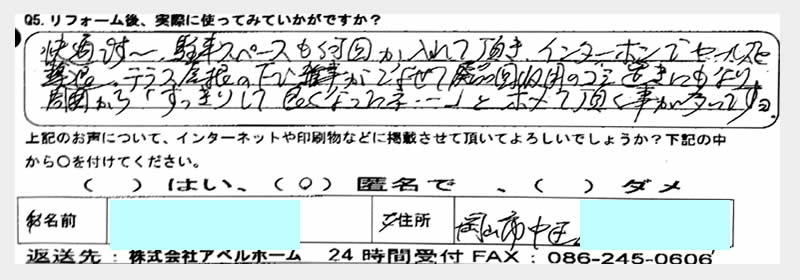 Q5. リフォーム後、実際に使ってみていかがですか?
快適です〜、駐車スペースも何回か入れて頂き、インターホンでセールスも
撃退、テラス屋根の下で雑事ができて廃品回収用のゴミ置きにもなり
周囲から「すっきりして良くなったネ…」とホメて頂く事が多いです。
上記のお声について、インターネットや印刷物などに掲載させて頂いてよろしいでしょうか?下記の中
から〇を付けてください。
( )はい、(〇)匿名で、( )ダメ
お名前 ご住所 岡山市中区
返送先:株式会社アベルホーム 24時間受付FAX:086-245-0606